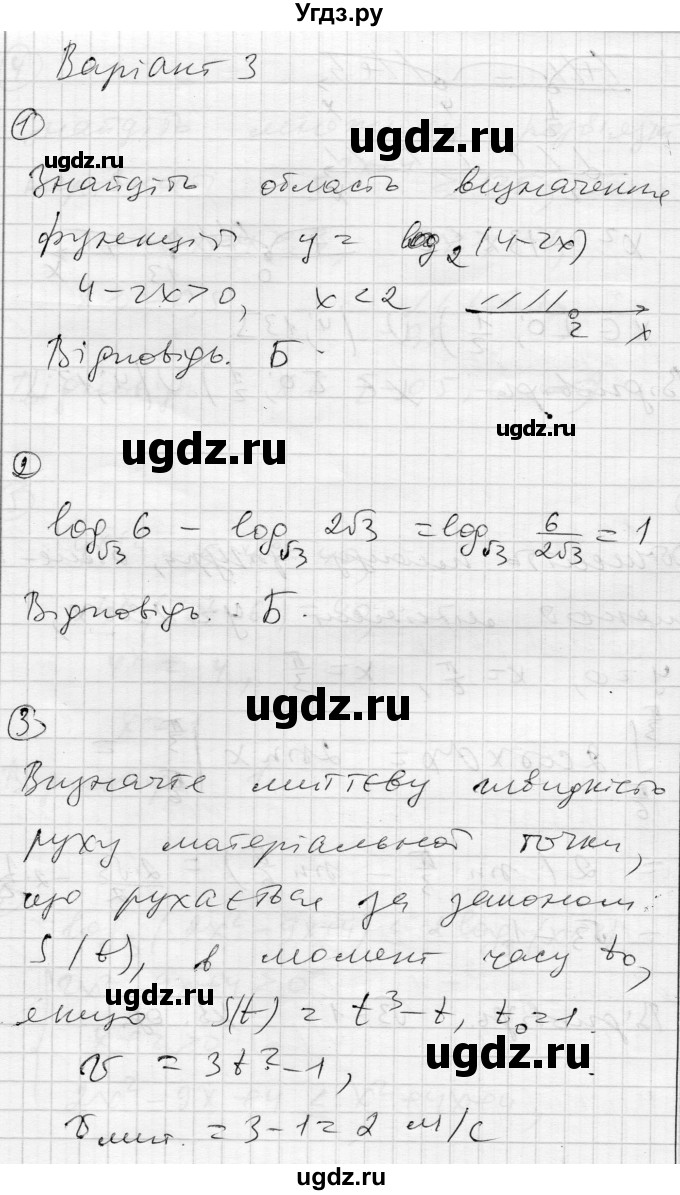 Угдз.ру
Варіант 3
①
ugdz.ru
ugdz.ru
Знайдіть область визначення
функції y = log₂ (4-2x)
4-2x>0, x<2
2 x
Відповідь. Б.
ugdz.ru
ugdz.ru
②
log_√3 6 - log_√3 2√3 = log_√3 6/2√3 = 1
Відповідь. Б.
ugdz.ru
③
Визначте миттєву швидкість
руху матеріальної точки,
що рухається за законом:
S(t), в момент часу t₀,
ugdz.ru
якщо S(t) = t³-t, t₀=1.
ugdz.ru
v = 3t²-1,
v мит. = 3-1=2 м/с
ugdz.ru